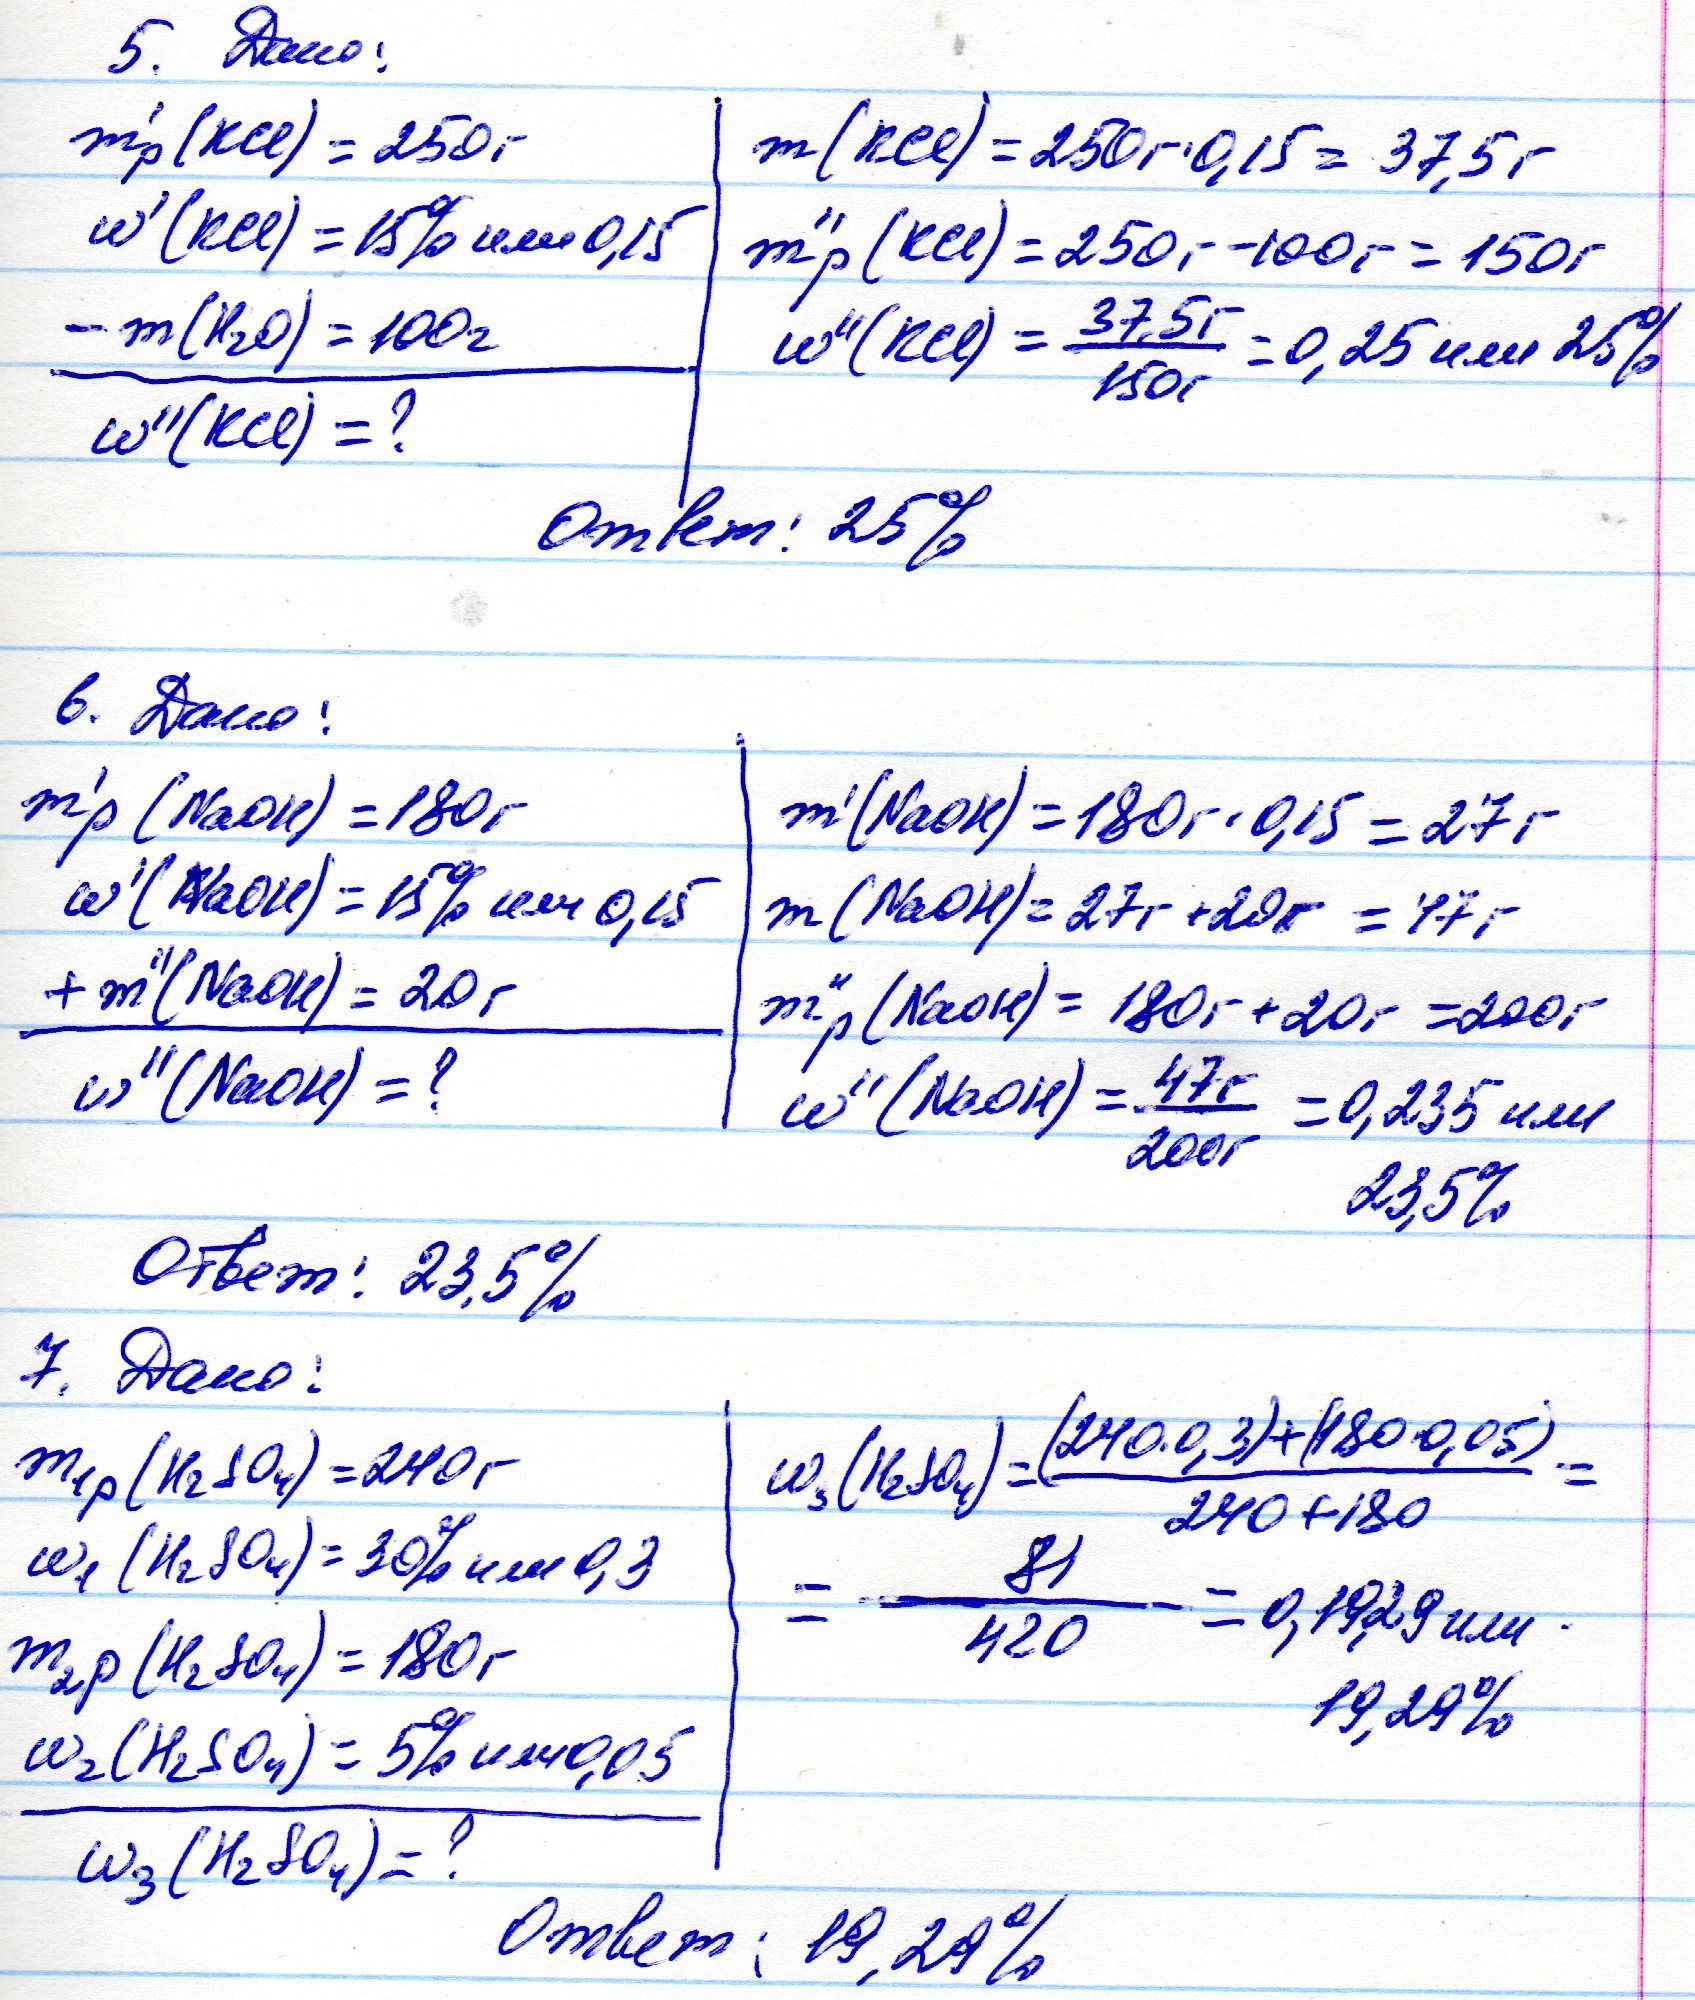 5. Дано:
m'р (KCl) = 250г
w'(KCl) = 15% или 0,15
- m(H₂O) = 100г
w''(KCl) = ?
m(KCl) = 250г·0,15 = 37,5г
m''р (KCl) = 250г - 100г = 150г
w''(KCl) = 37,5г/150г = 0,25 или 25%
Ответ: 25%
6. Дано:
m'р (NaOH) = 180г
w'(NaOH) = 15% или 0,15
+ m''(NaOH) = 20г
w''(NaOH) = ?
m'(NaOH) = 180г·0,15 = 27г
m(NaOH) = 27г + 20г = 47г
m''р (NaOH) = 180г + 20г = 200г
w''(NaOH) = 47г/200г = 0,235 или
23,5%
Ответ: 23,5%
7. Дано:
m₁р (H₂SO₄) = 240г
w₁ (H₂SO₄) = 30% или 0,3
m₂р (H₂SO₄) = 180г
w₂ (H₂SO₄) = 5% или 0,05
w₃ (H₂SO₄) = ?
w₃(H₂SO₄) = (240·0,3)+(180·0,05)/240+180 =
= 81/420 = 0,1929 или
19,29%
Ответ: 19,29%